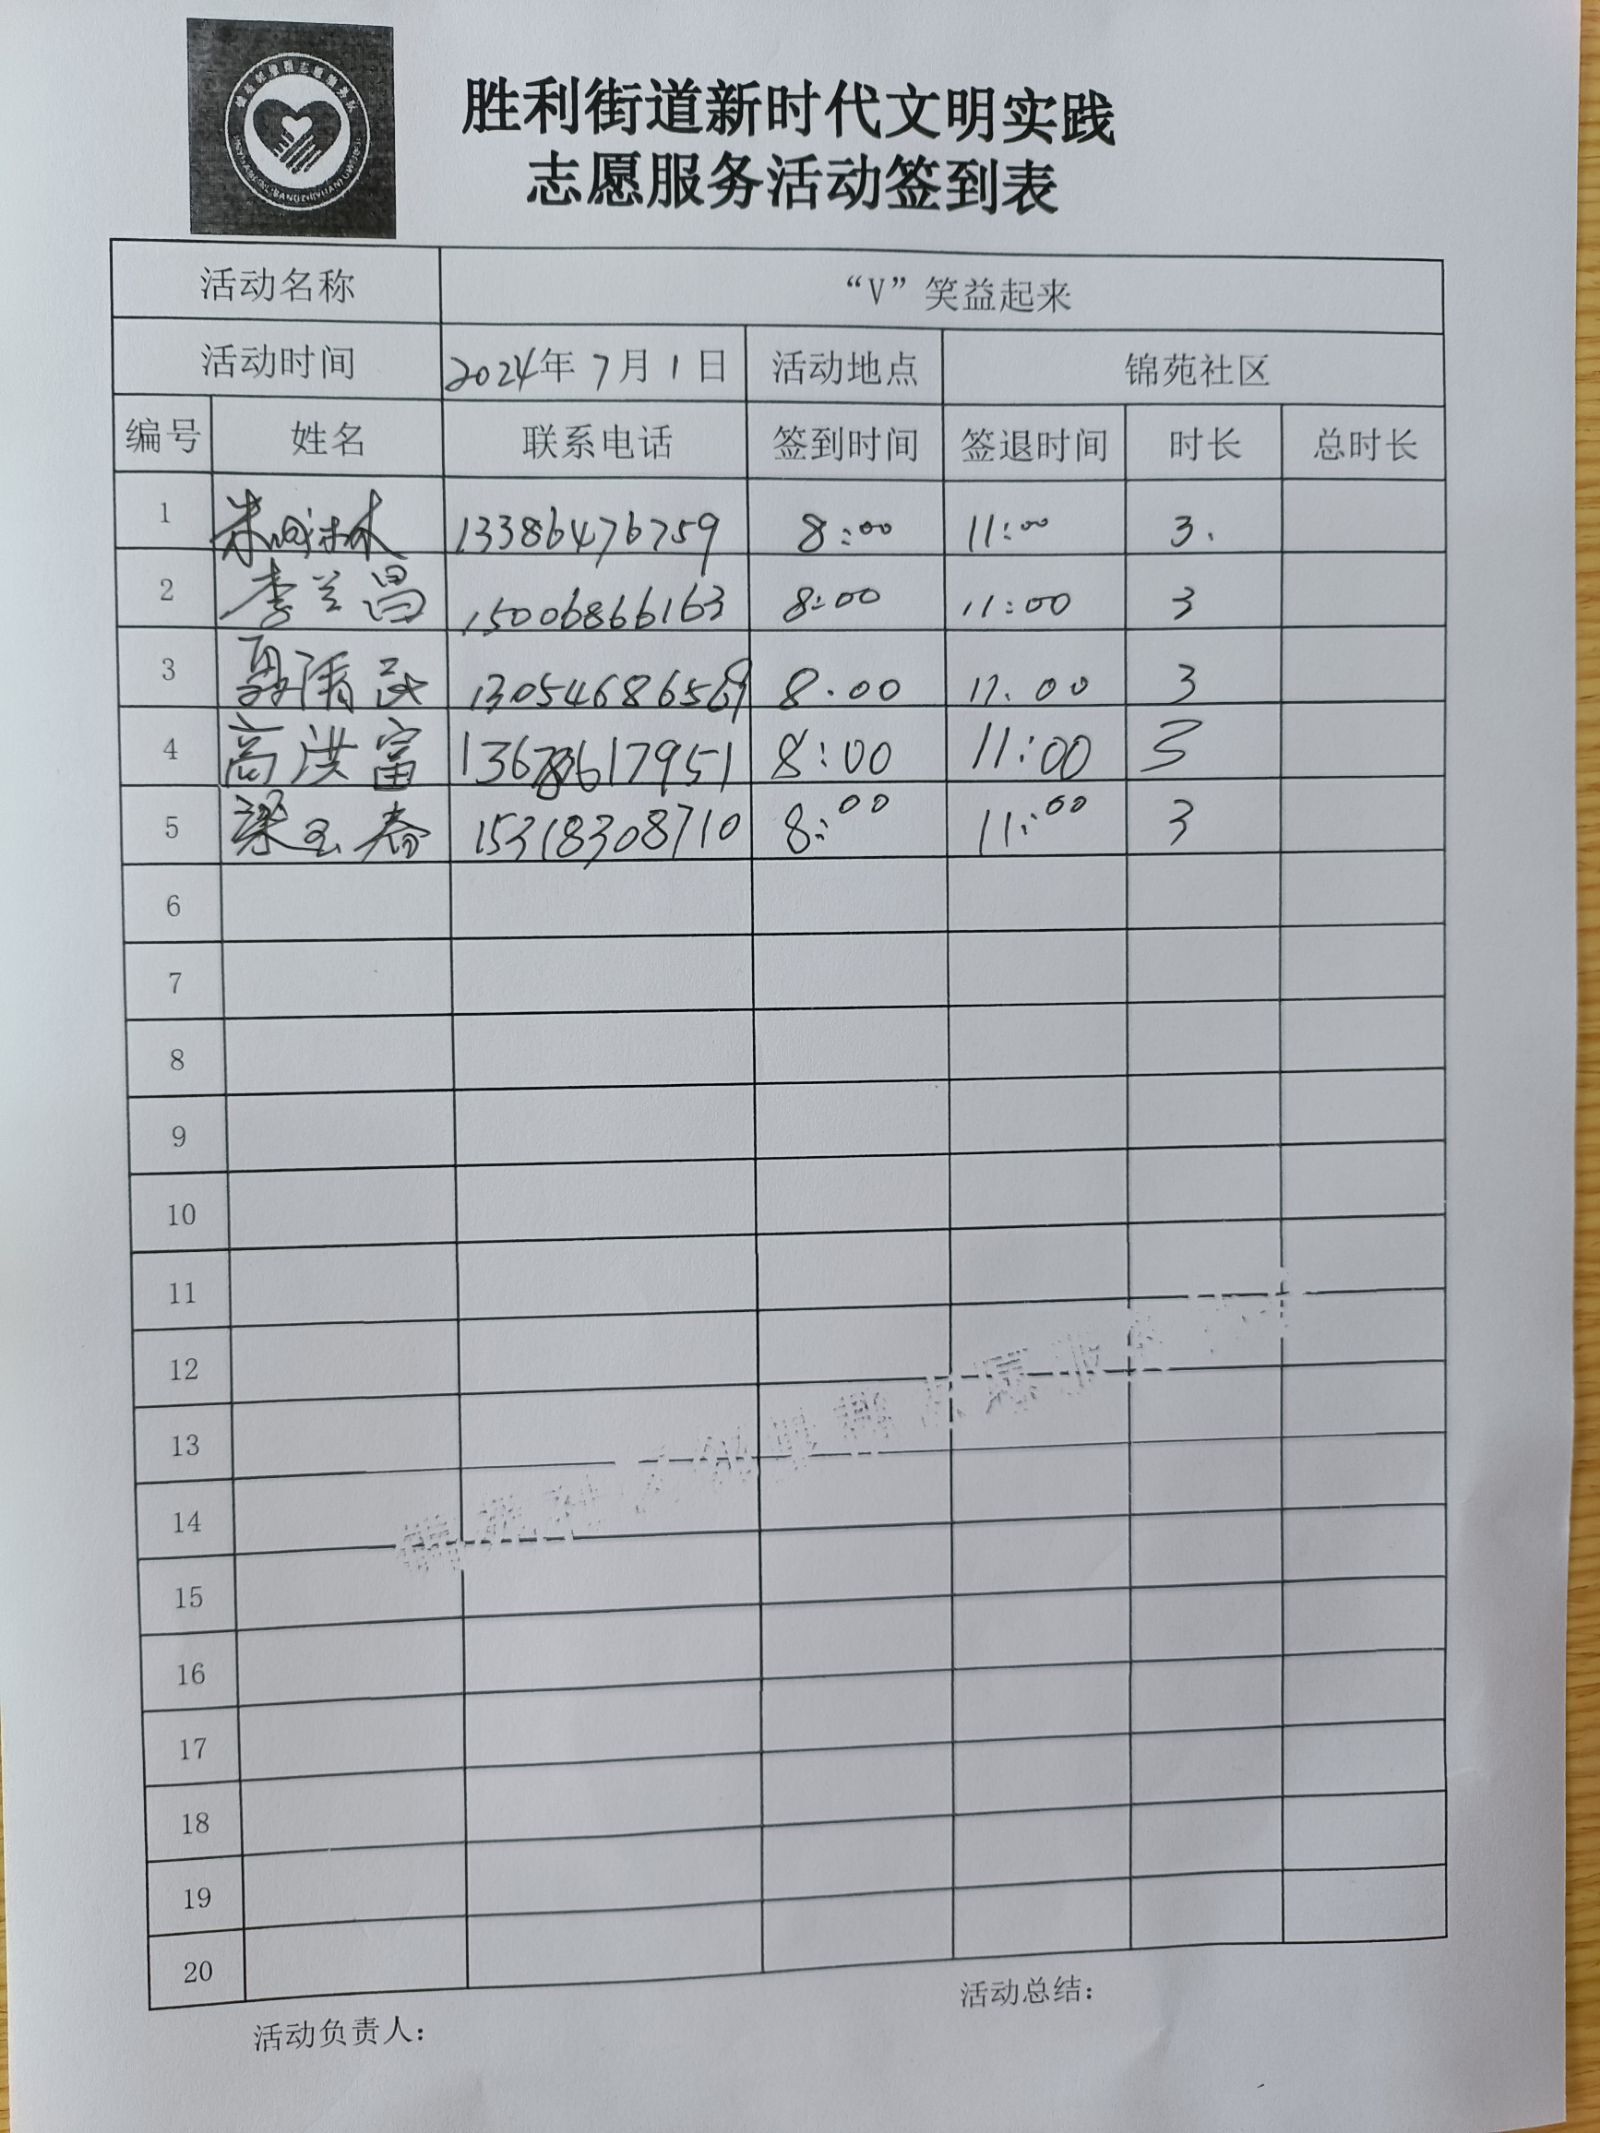 胜利街道新时代文明实践
志愿服务活动签到表
活动名称 “V”笑益起来
活动时间 2024年 7月1日 活动地点 锦苑社区
编号 姓名 联系电话 签到时间 签退时间 时长 总时长
1 朱成林 13386476759 8:00 11:00 3.
2 李兰昌 15006866163 8:00 11:00 3
3 聂清民 8.00 11.00 3
4 高洪富 8:00 11:00 3
5 梁玉春 15318308710 8:00 11:00 3
6
7
8
9
10
11
12
13
14
15
16
17
18
19
20
活动负责人： 活动总结：